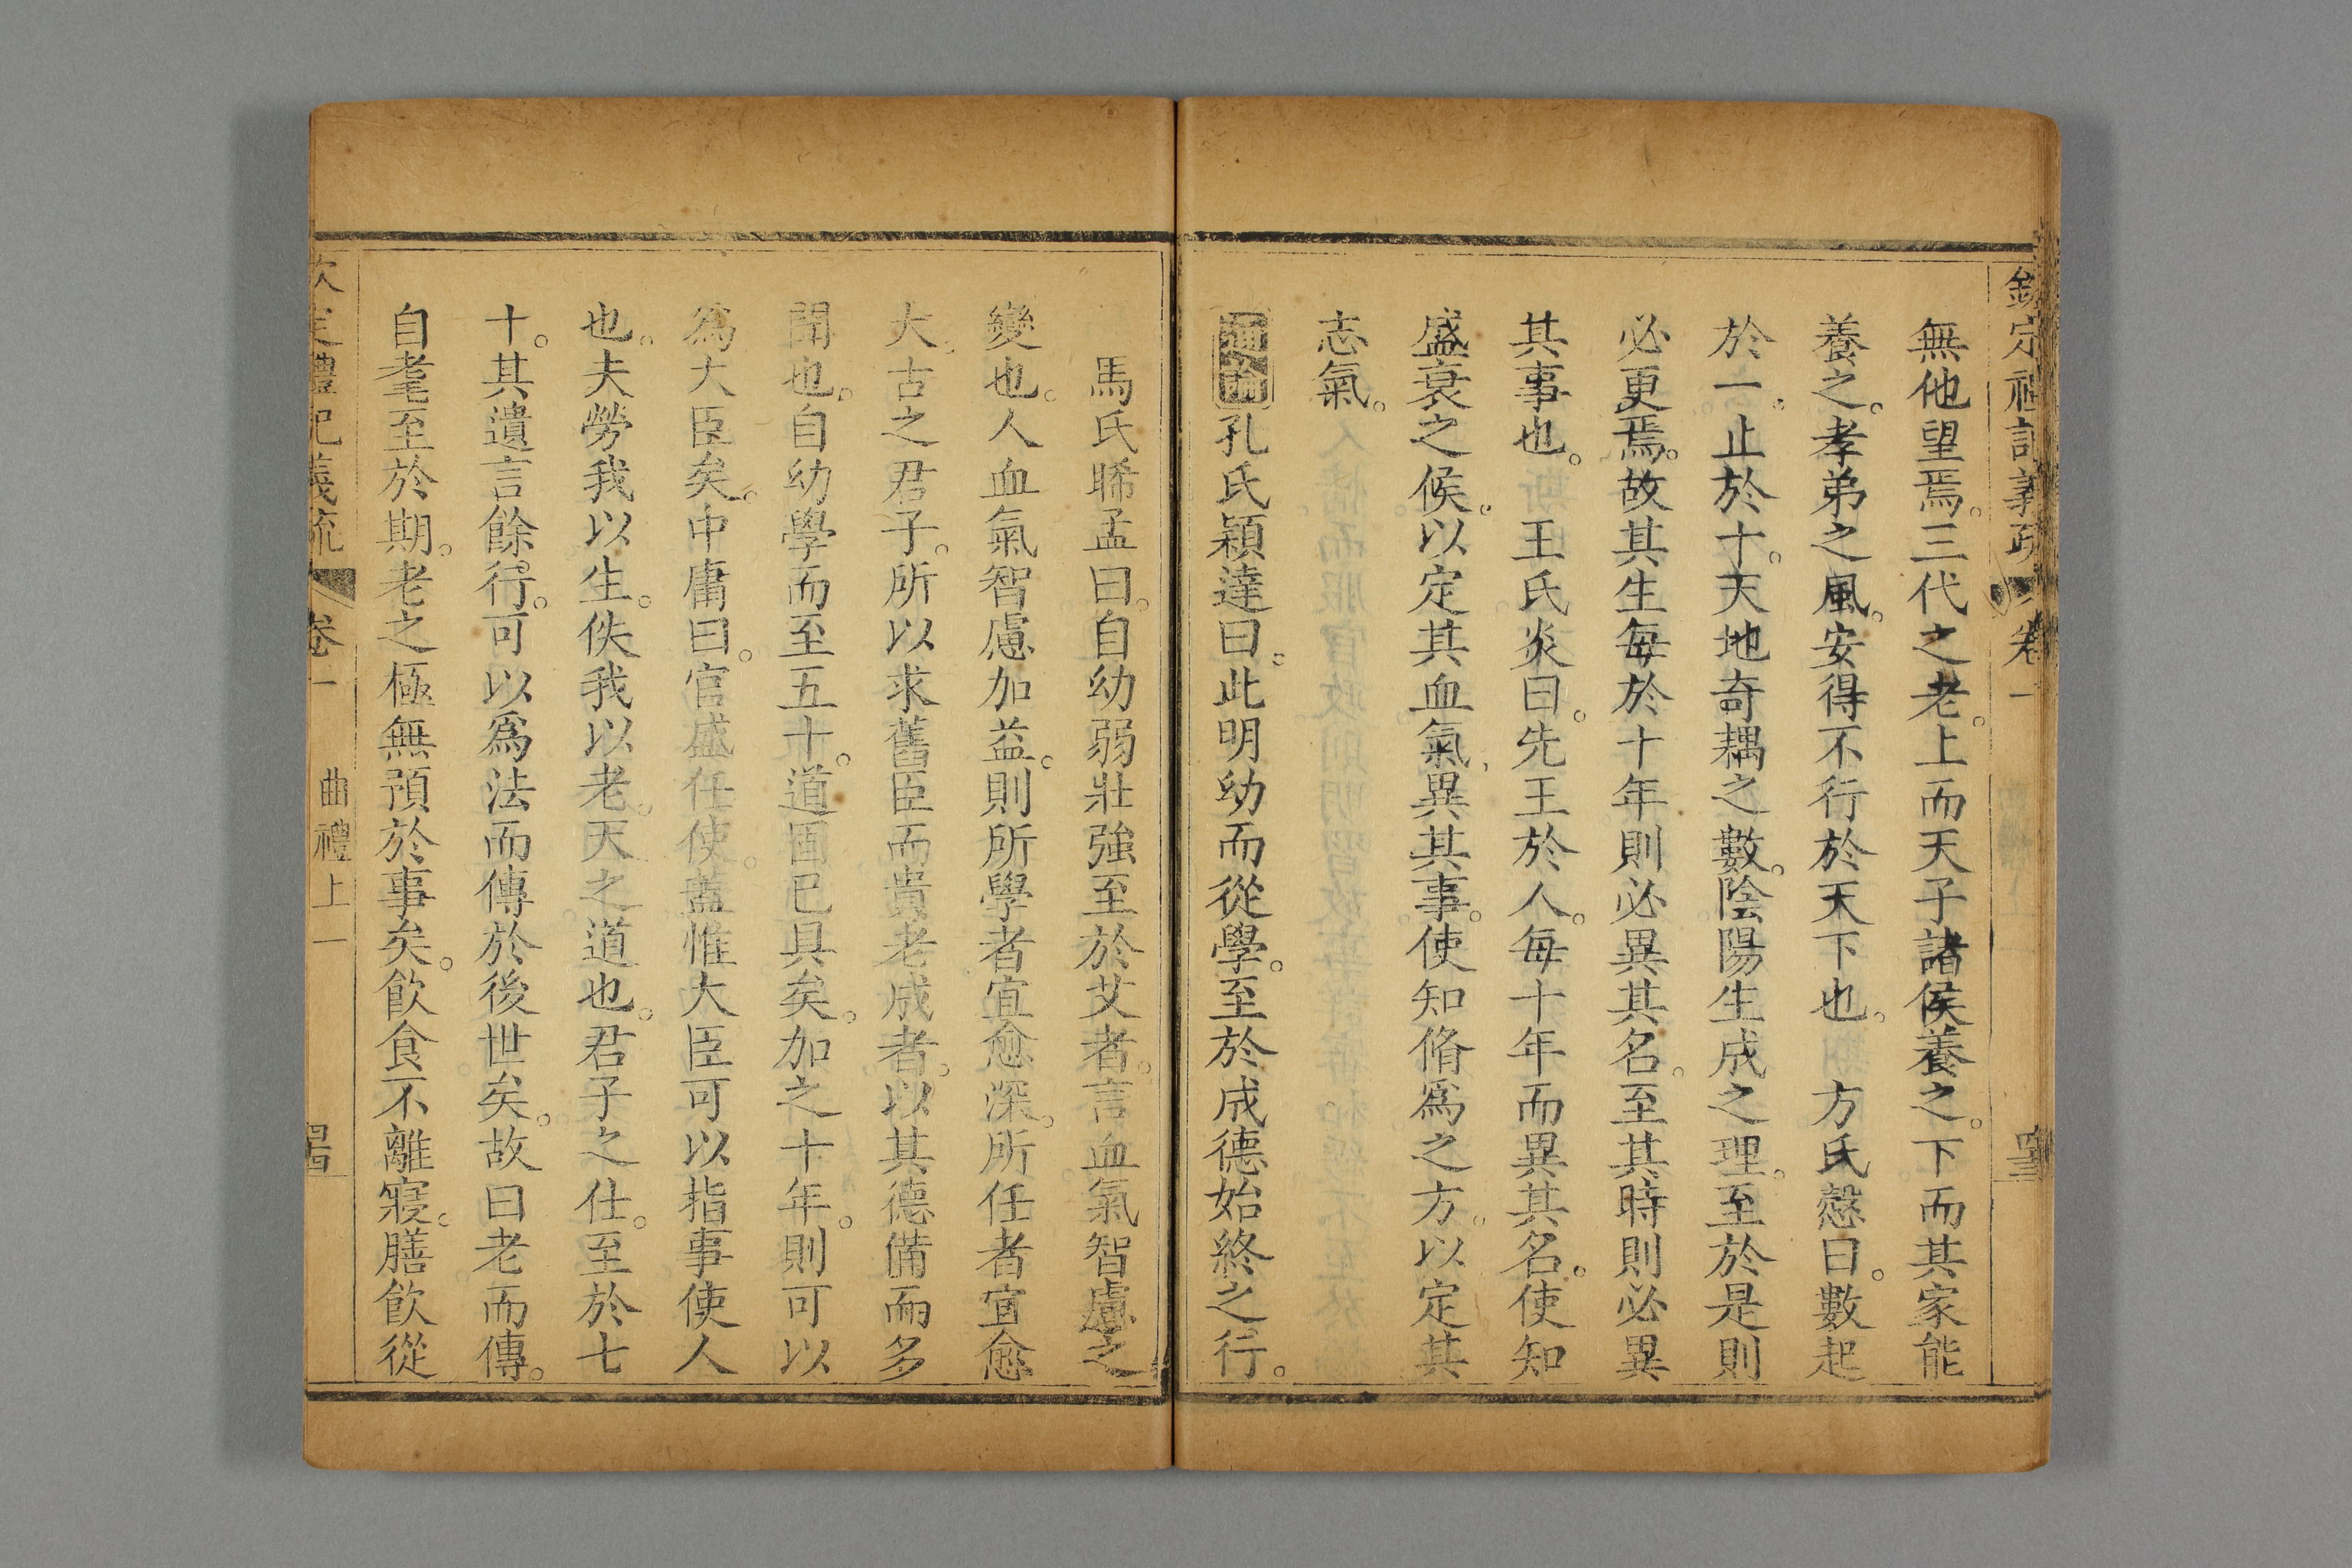 無他望焉。三代之老。上而天子諸侯養之。下而其家能
養之。孝弟之風。安得不行於天下也。　方氏慤曰。數起
於一。止於十。天地奇耦之數。陰陽生成之理。至於是則
必更焉。故其生每於十年則必異其名。至其時則必異
其事也。　王氏炎曰。先王於人。每十年而異其名。使知
盛衰之候。以定其血氣、異其事。使知脩爲之方。以定其
志氣。
通論孔氏穎達曰。此明幼而從學。至於成德始終之行。
馬氏晞孟曰。自幼弱壯強至於艾者。言血氣智慮之
變也。人血氣智慮加益。則所學者宜愈深。所任者宜愈
大。古之君子。所以求舊臣而貴老成者。以其德備而多
聞也。自幼學而至五十。道固已具矣。加之十年。則可以
爲大臣矣。中庸曰。官盛任使。蓋惟大臣可以指事使人
也。夫勞我以生。佚我以老。天之道也。君子之仕。至於七
十。其遺言餘行。可以爲法而傳於後世矣。故曰老而傳。
自耄至於期。老之極無預於事矣。飲食不離寢。膳飲從
卷一　曲禮上一